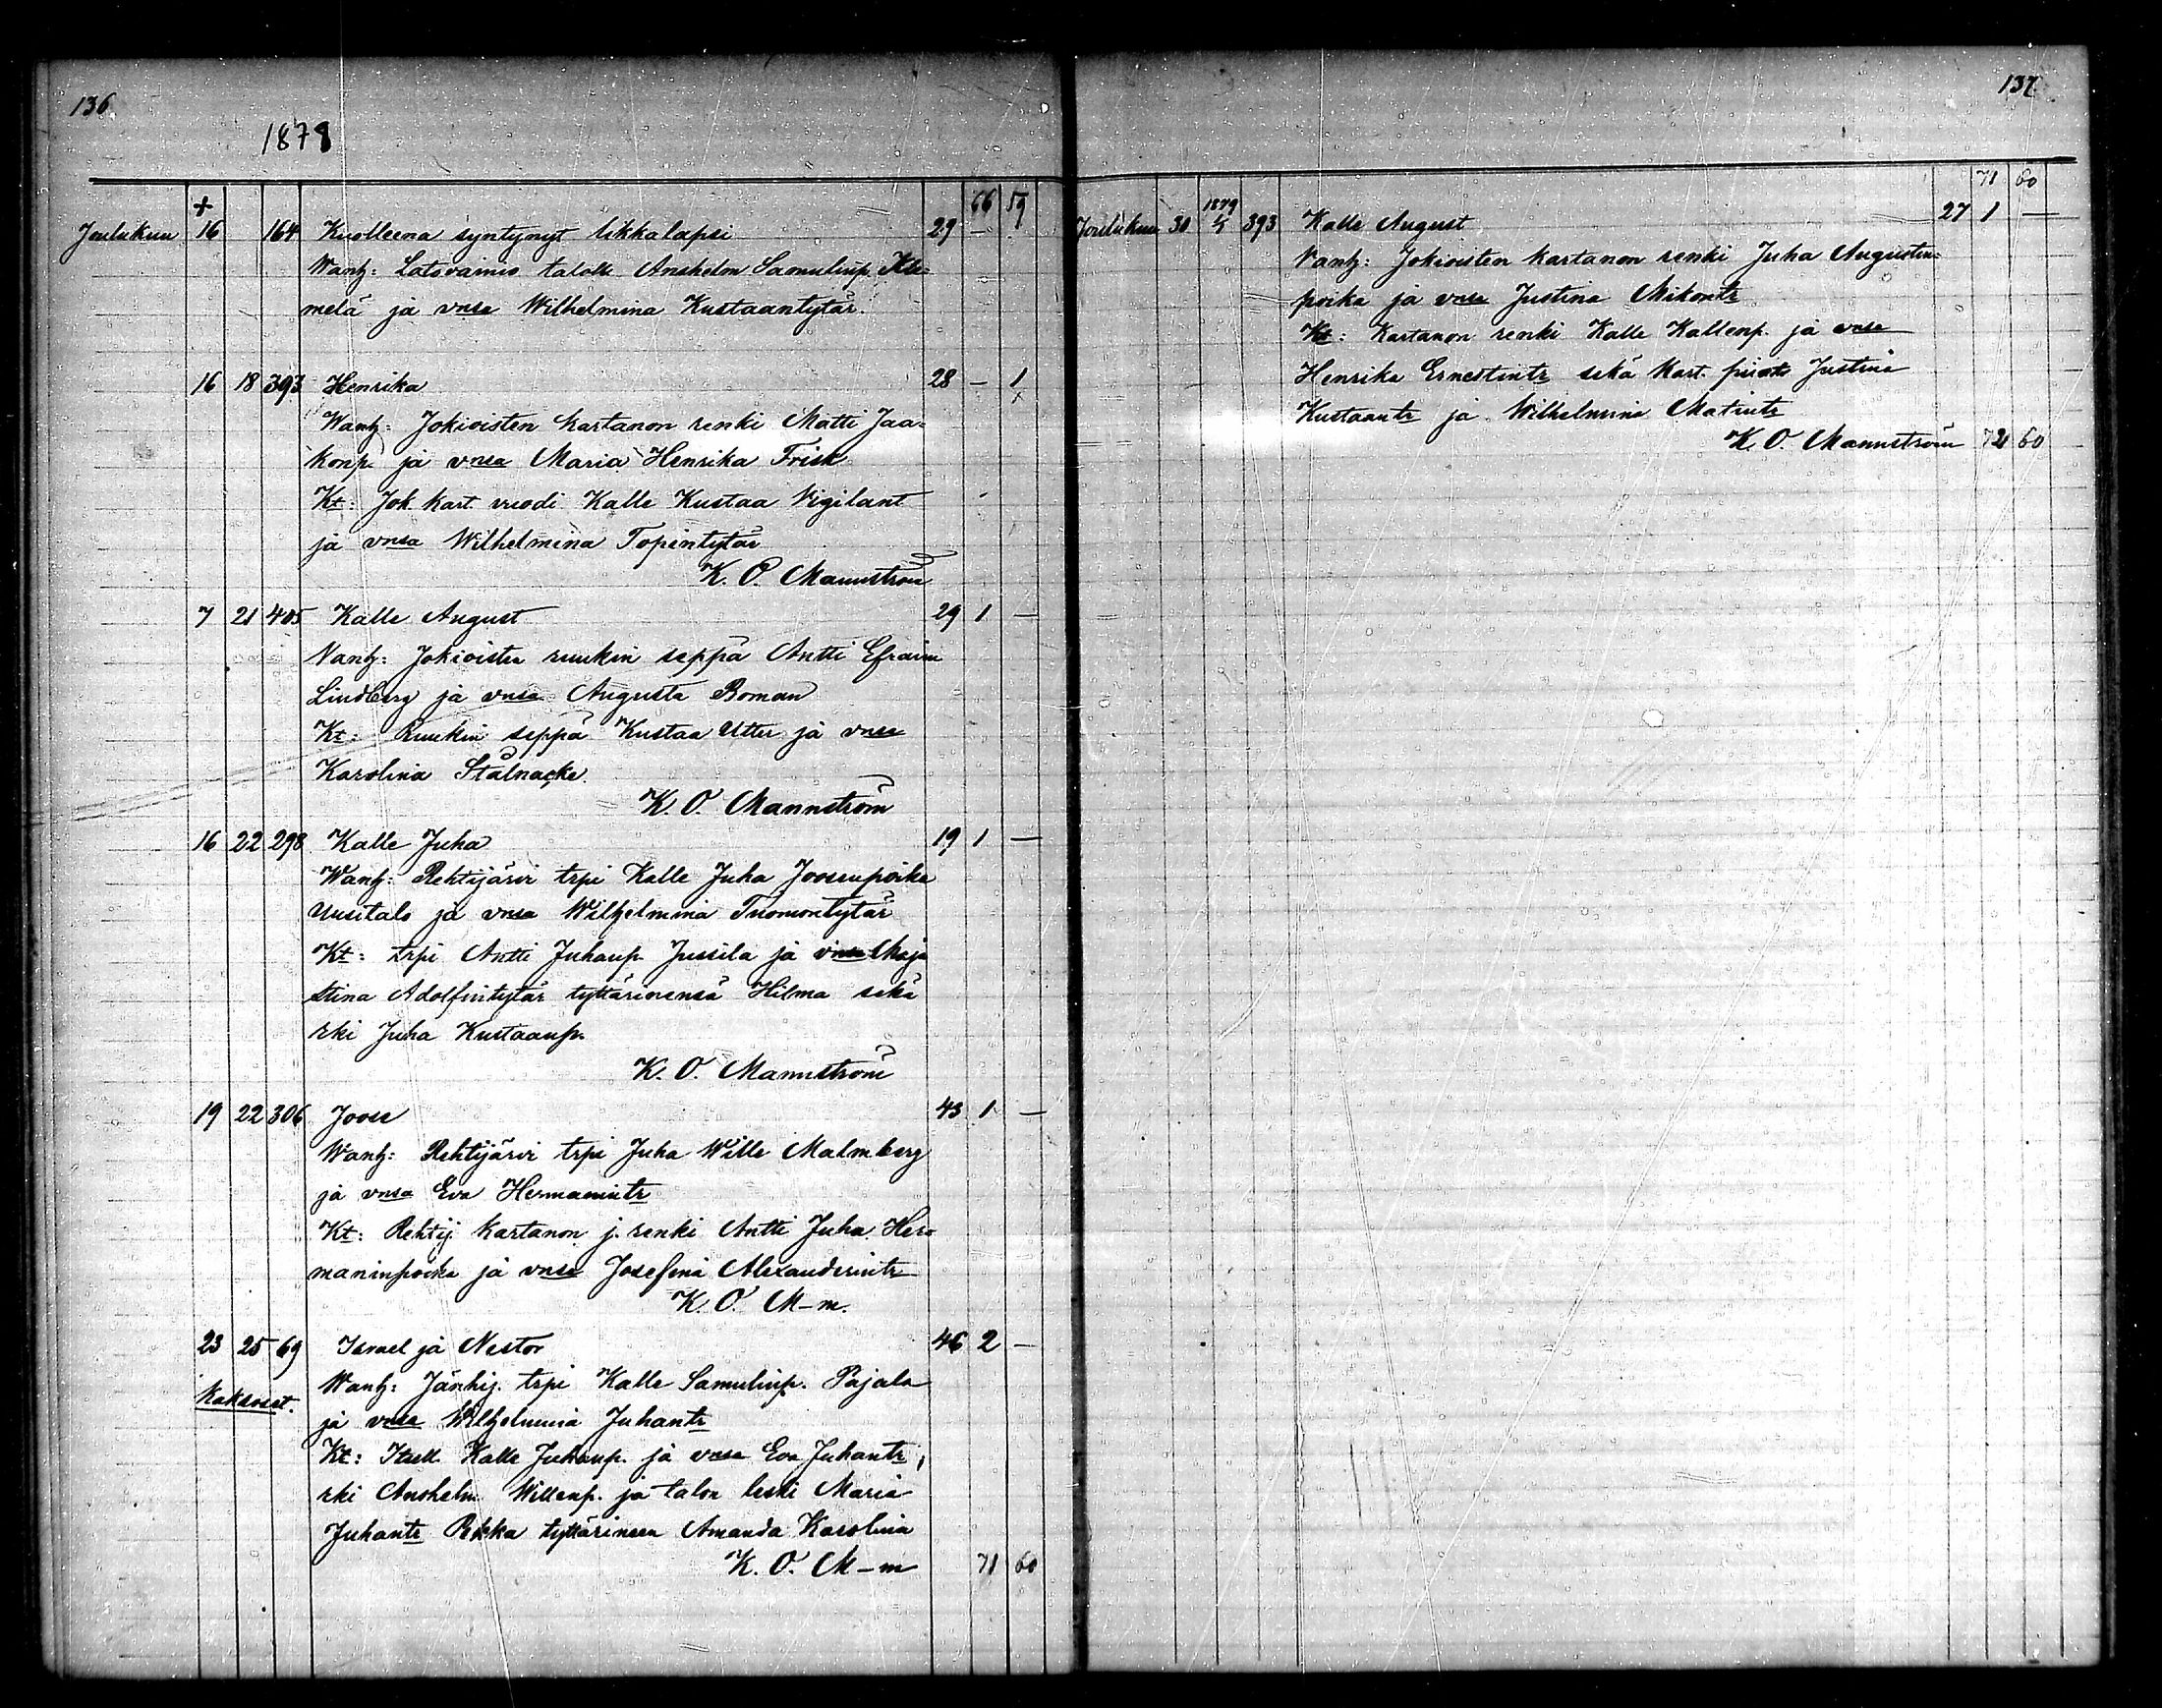 136
1878
66 59
Joulukuu + 16 164 Kuolleena syntynyt likkalapsi 29 —
Wanh: Latovainio taloll. Anshelm Samulinp. Kle-
melä ja vnsa Wilhelmina Kustaantytär.
16 18 393 Henrika 28 — 1
Wanh: Jokioisten kartanon renki Matti Jaa-
konp. ja vnsa Maria Henrika Frisk
Kt: Jok. kart. vuodi Kalle Kustaa Vigilant
ja vnsa Wilhelmina Topintytär
K. O. Mannström
7 21 405 Kalle August 29 1 —
Vanh: Jokioisten ruukin seppä Antti Efraim
Lindberg ja vnsa Augusta Roman
Kt: Ruukin seppä Kustaa Utter ja vnsa
Karolina Stålnacke.
K. O. Mannström
16 22 298 Kalle Juha 19 1 —
Wanh: Rehtijärvi trpi Kalle Juha Joosenpoika
Uusitalo ja vnsa Wilhelmina Tuomontytär
Kt: trpi Antti Juhanp. Jussila ja vnsa Maja
Stina Adolfintytär tyttärinensä Hilma sekä
rki Juha Kustaanp.
K. O. Mannström
19 22 306 Joose 43 1 —
Wanh: Rehtijärvi trpi Juha Wille Malmberg
ja vnsa Eva Hermannintr
Kt: Rehtij. kartanon j. renki Antti Juha Her-
maninpoika ja vnsa Josefina Alexanderintr
K. O. M-m.
23 25 69 Israel ja Nestor 46 2 —
Kaksoset.
Wanh: Jänhij. trpi Kalle Samulinp. Pajala
ja vnsa Wilhelmina Juhantr
Kt: Itsell. Kalle Juhanp. ja vnsa Eva Juhantr,
rki Anshelm Willenp. ja talon leski Maria
Juhantr Pekka tyttärineen Amanda Karolina
K. O. M-m 71 60
137
71 60
Joulukuu 30 1879 4 393 Kalle August 27 1 —
Vanh: Jokioisten kartanon renki Juha Augustin-
poika ja vnsa Justina Mikontr
Kt: Kartanon renki Kalle Kallenp. ja vnsa
Henrika Ernestintr sekä kart. piiat Justina
Kustaantr ja Wilhelmina Matintr
K. O. Mannström 72 60